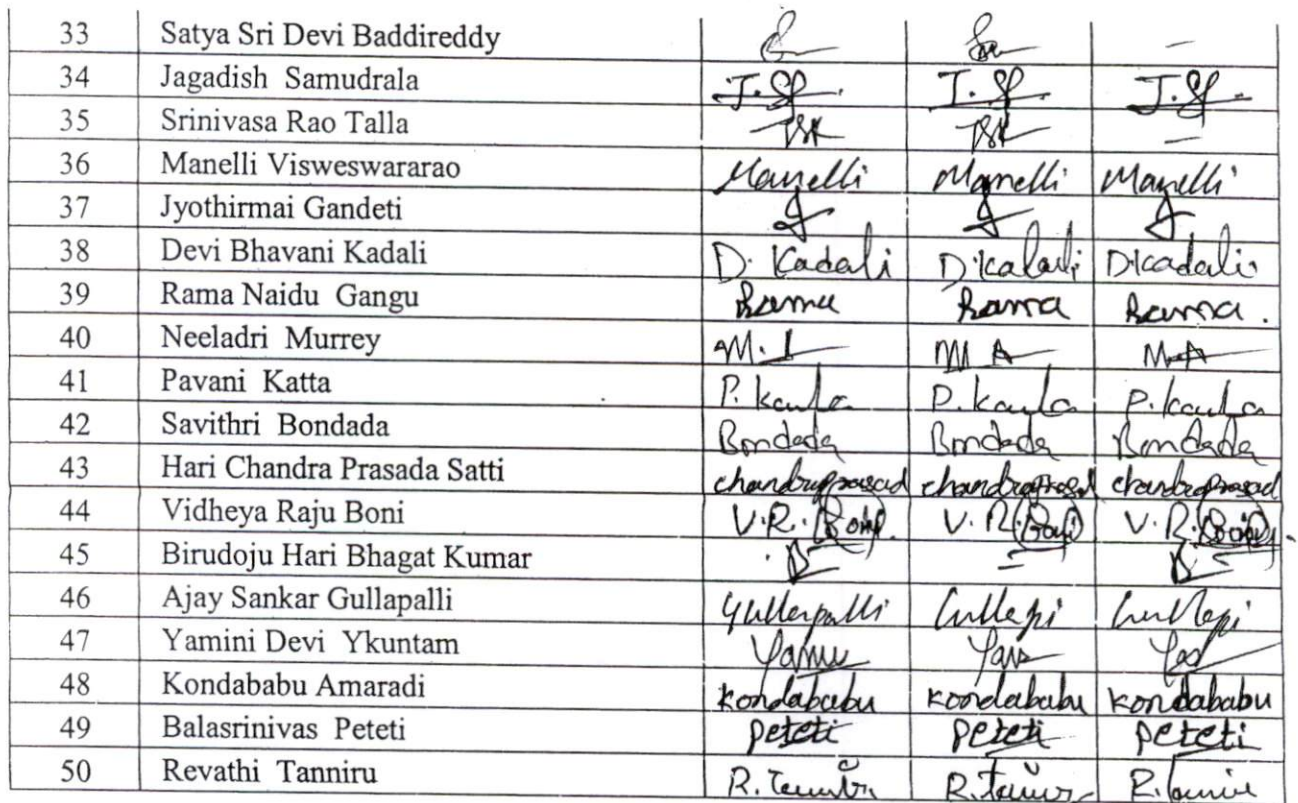 33 Satya Sri Devi Baddireddy –
34 Jagadish Samudrala J.S J.S J.S
35 Srinivasa Rao Talla TSR TSR –
36 Manelli Visweswararao Manelli Manelli Manelli
37 Jyothirmai Gandeti
38 Devi Bhavani Kadali D. Kadali D.Kadali D.Kadali
39 Rama Naidu Gangu Rama Rama Rama.
40 Neeladri Murrey M. M A M A
41 Pavani Katta P. Katta P. Katta P. Katta
42 Savithri Bondada Bondada Bondada Bondada
43 Hari Chandra Prasada Satti chandraprasad chandraprasad chandraprasad
44 Vidheya Raju Boni V.R. (Boni) V.R. (Boni) V.R. (Boni)
45 Birudoju Hari Bhagat Kumar B – B
46 Ajay Sankar Gullapalli Gullapalli
47 Yamini Devi Ykuntam
48 Kondababu Amaradi Kondababu Kondababu Kondababu
49 Balasrinivas Peteti Peteti Peteti Peteti
50 Revathi Tanniru R. R. R.